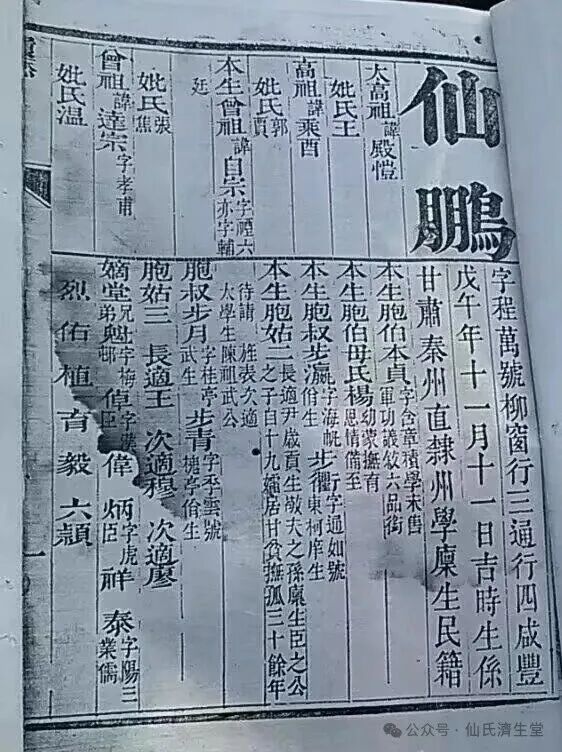 仙鵬
字程萬號柳窗行三通行四咸豐
戊午年十一月十一日吉時生係
甘肅秦州直隸州學廩生民籍
太高祖諱殿愷
妣氏王
高祖諱乘酉
妣氏郭賈
本生曾祖諱自崇字禋六亦字輔廷
妣氏張焦
曾祖諱達宗字孝甫
妣氏温
本生胞伯本貞字含章積學未售軍功議敘六品銜
本生胞伯母氏楊幼蒙撫育恩情備至
本生胞叔步瀛字海帆俗生 步衢字通如號東柯庠生
本生胞姑二長適尹歲貢生敬夫之孫廩生臣之公之子自十九孀居甘貧撫孤三十餘年待請旌表次適太學生陳祖武公
胞叔步月字桂亭武生 步青字季雲號槐亭俗生
胞姑三 長適王 次適穆 次適廖
嫡堂兄弟魁字梅邨 倬字漢臣 偉 炳字虎臣 祥 泰字陽三業儒
烈 佑 植 育 毅 六顛
公众号·仙氏濟生堂